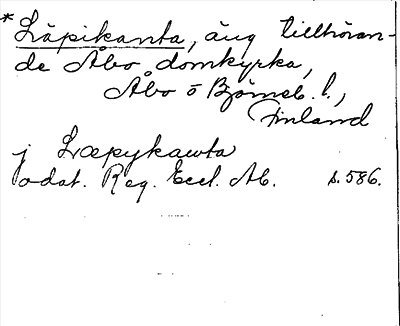 *Läpikanta, äng tillhöran-
de Åbo domkyrka,
Åbo o Björneb. l.,
Finland
j Læpykawta
odat. Reg. Eccl. Ab. s. 586.